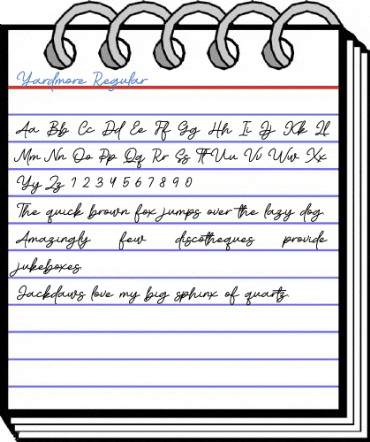 Yardmore Regular
Aa Bb Cc Dd Ee Ff Gg Hh Ii Jj Kk Ll
Mm Nn Oo Pp Qq Rr Ss Tt Uu Vv Ww Xx
Yy Zz 1 2 3 4 5 6 7 8 9 0
The quick brown fox jumps over the lazy dog.
Amazingly few discotheques provide
jukeboxes.
Jackdaws love my big sphinx of quartz.